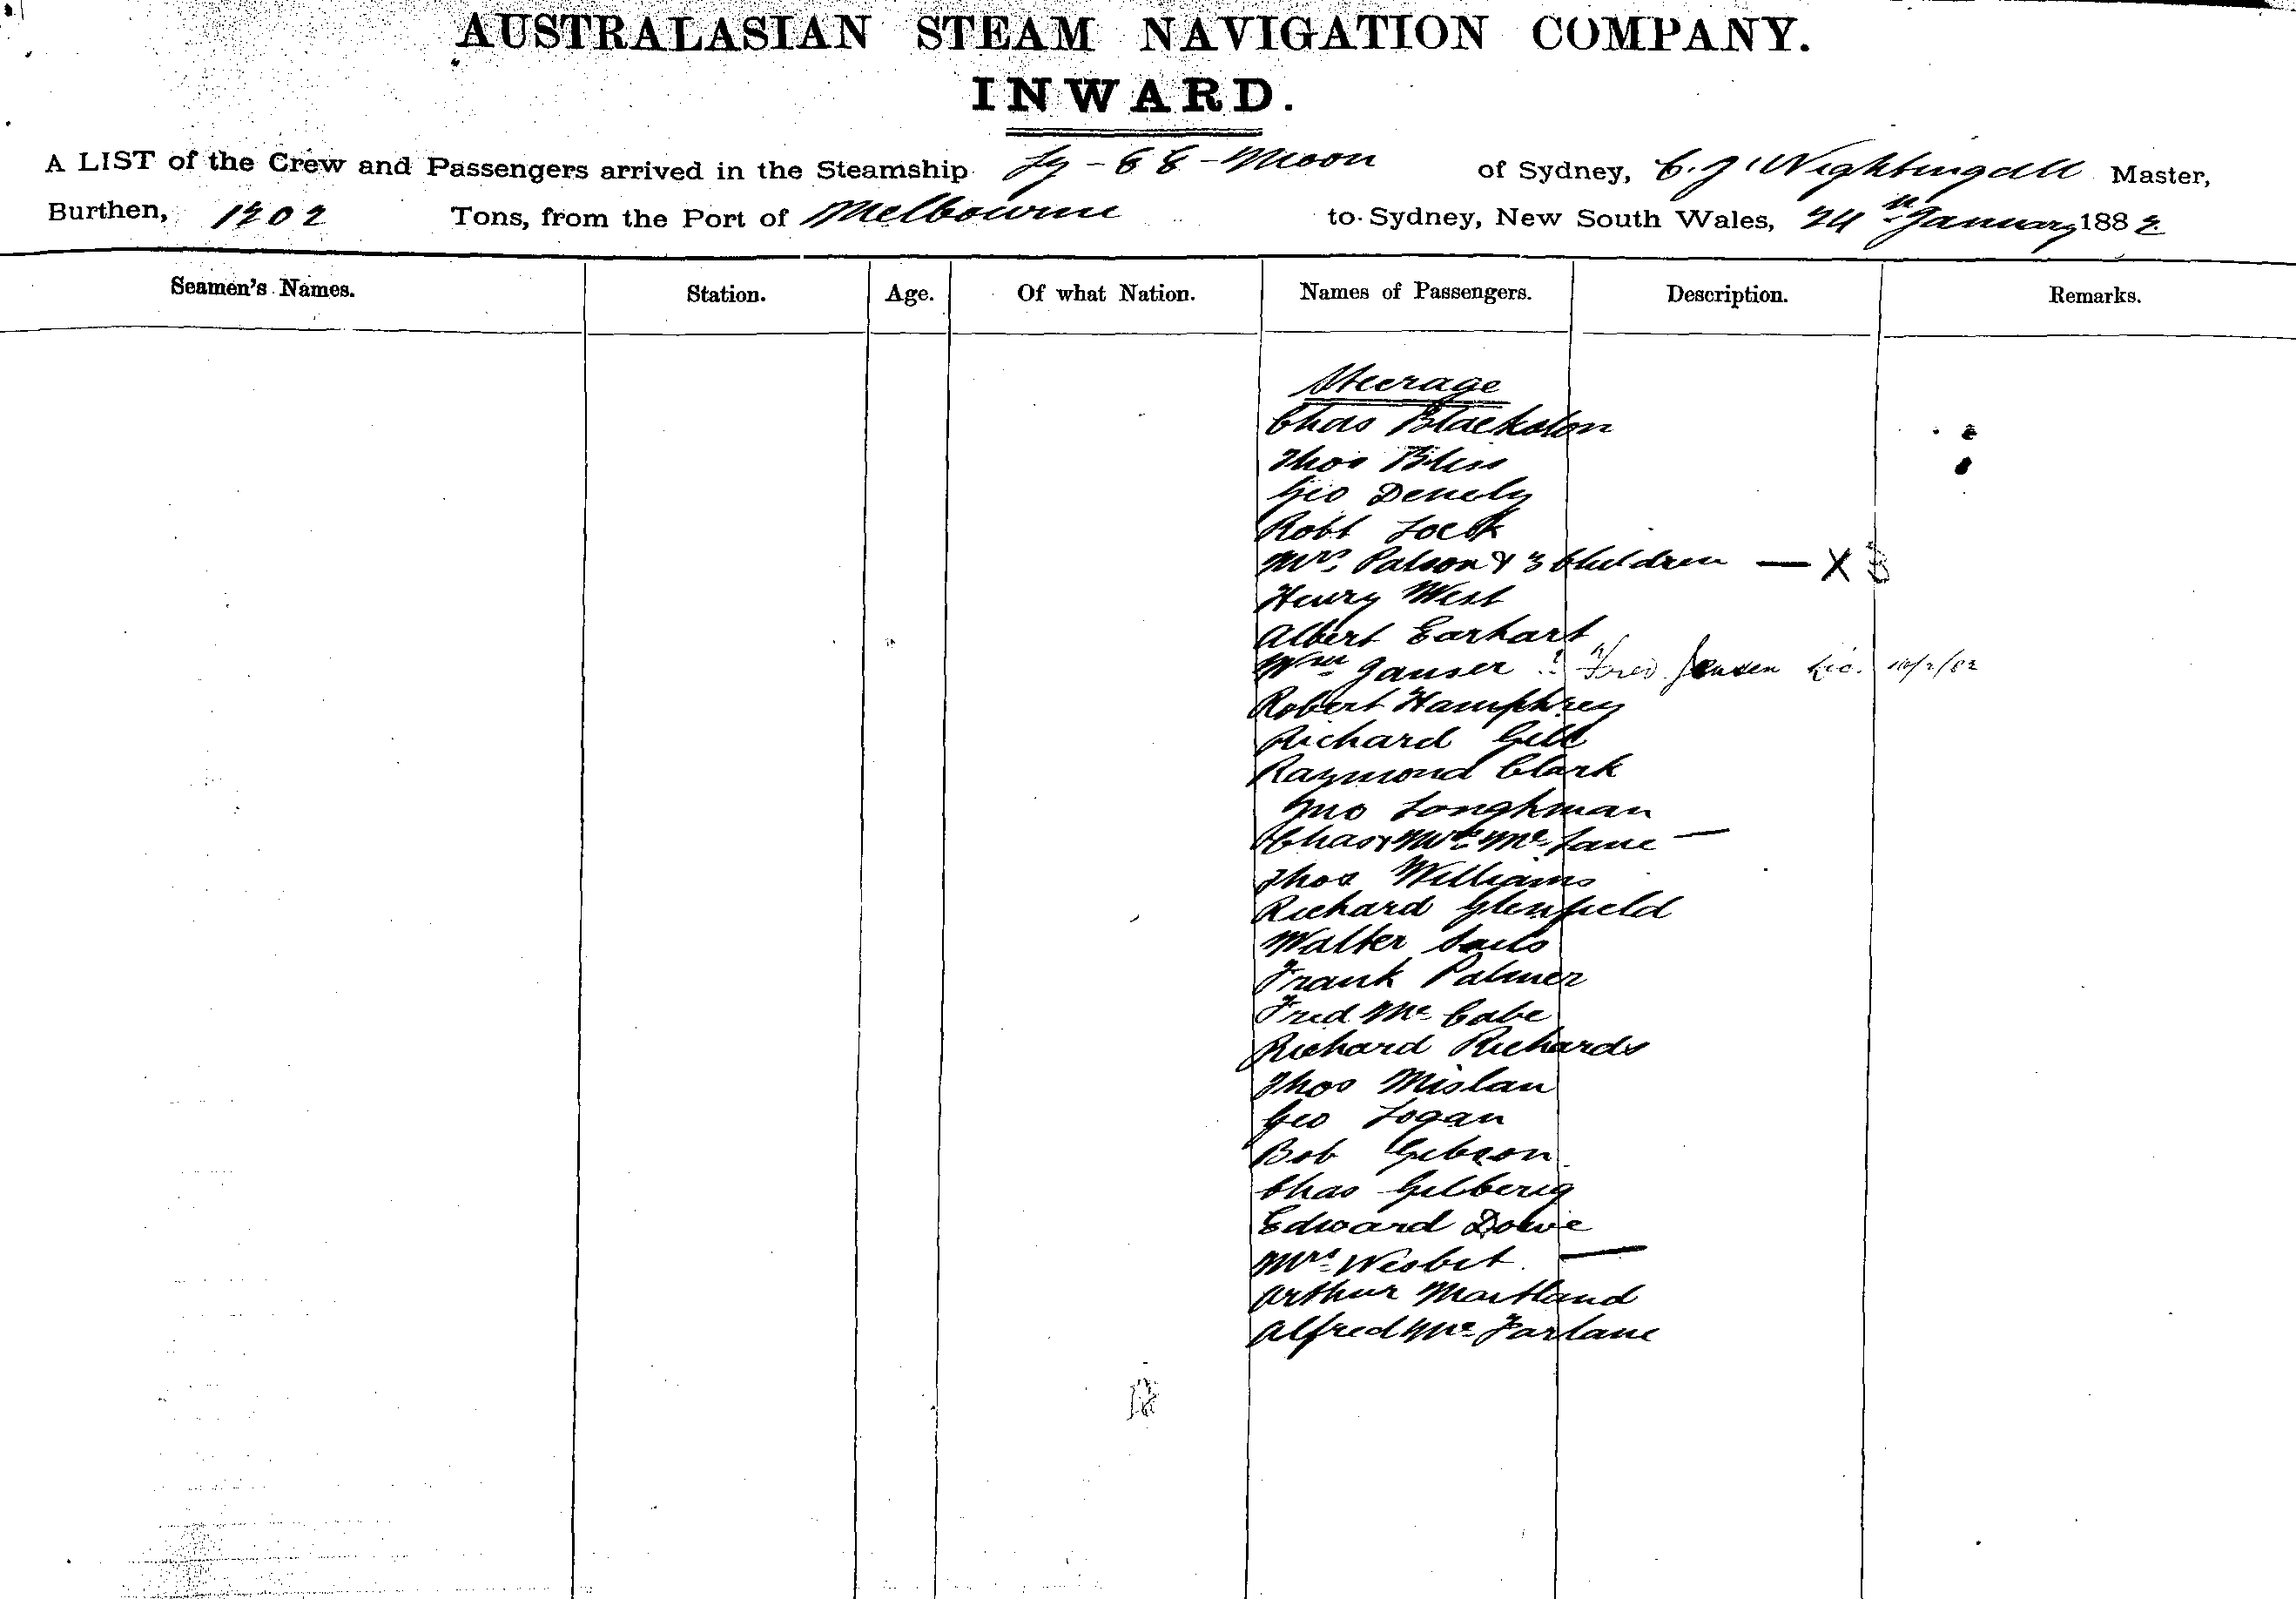 AUSTRALASIAN STEAM NAVIGATION COMPANY.
INWARD.
A LIST of the Crew and Passengers arrived in the Steamship Ly-EE-Moon of Sydney, C. J. Nightingall Master,
Burthen, 1202 Tons, from the Port of Melbourne to Sydney, New South Wales, 24th January 1882
Seamen's Names. Station. Age. Of what Nation. Names of Passengers. Description. Remarks.
Steerage
Chas Blackston
Thos Bliss
Geo Denely
Robt Lock
Mrs Patson & 3 Children — X 3
Henry West
Albert Earhart
Wm Janser Fred Jensen
Robert Hamphrey
Richard Gill
Raymond Clark
Jno Longhman
Chas & Mrs McLane —
Thos Williams
Richard Glenfield
Walter
Frank Palmer
Fred McCabe
Richard Richards
Thos Mislan
Geo Logan
Bob Gibson
Chas Gilberig
Edward Dowe
Mrs Nisbet —
Arthur Maitland
Alfred McFarlane